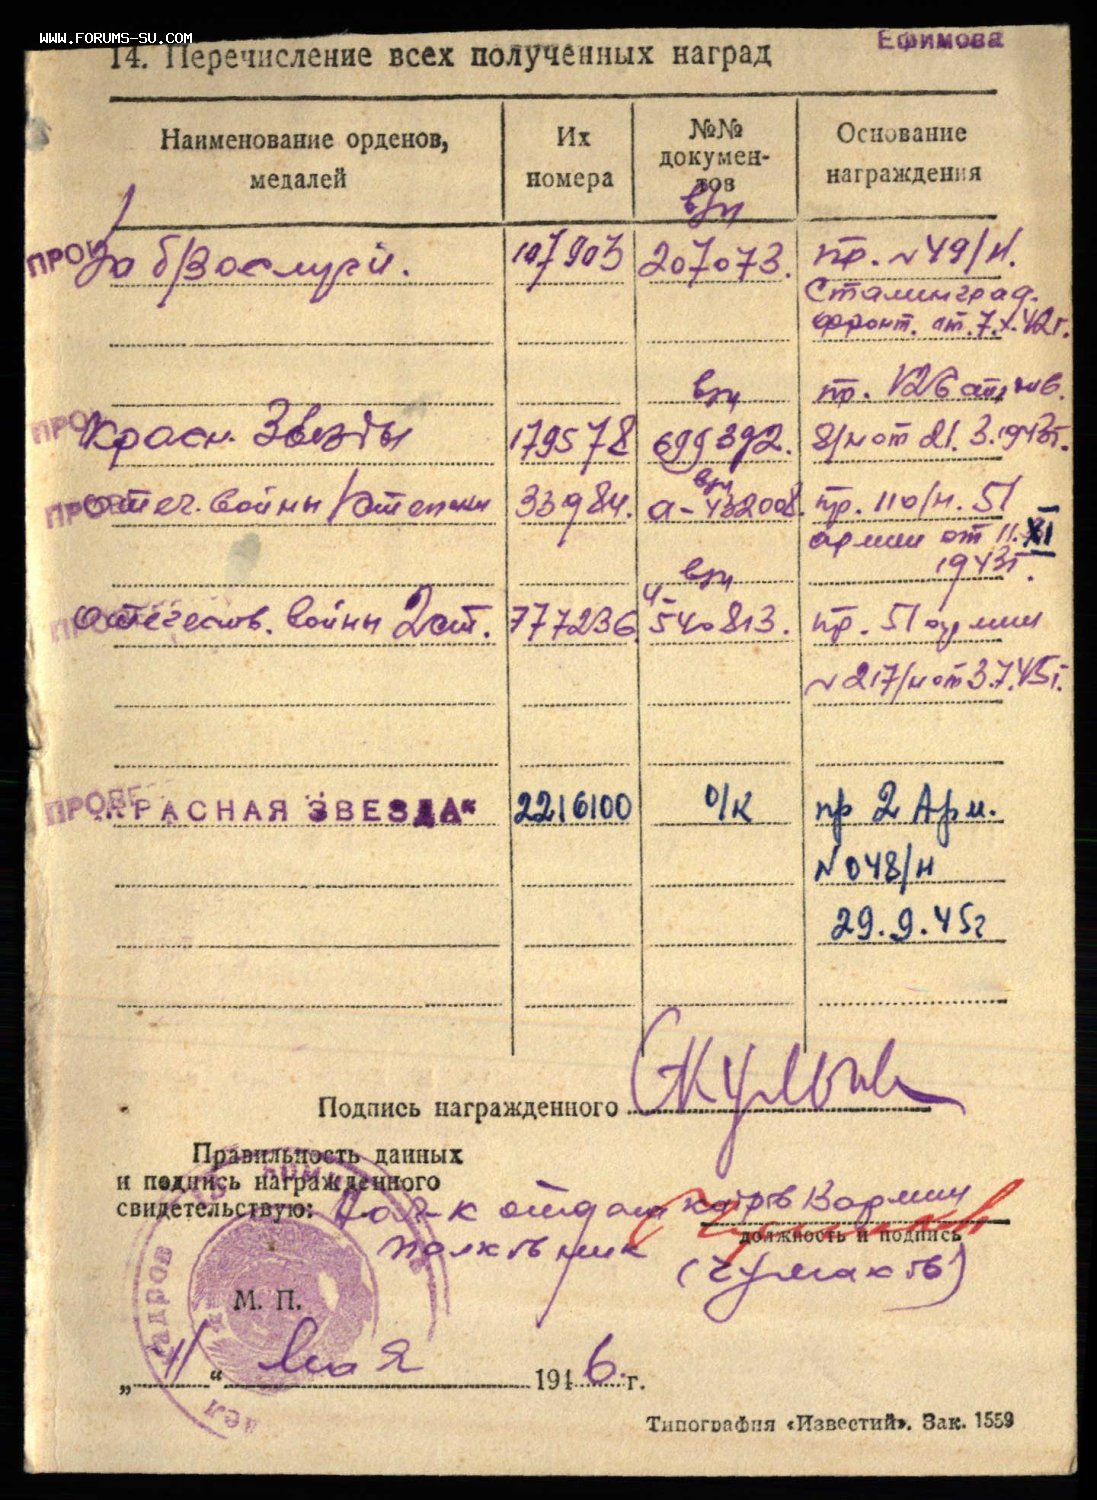 WWW.FORUMS-SU.COM
Ефимова
14. Перечисление всех полученных наград
Наименование орденов, медалей
Их номера
№№ докумен-тов
Основание награждения
в/ч
За б/заслуги. 107903 207073. пр. №49/н.
Сталинград.
фронт. от 7.X.42г.
в/ч пр. 126
Красн. Звезды 179578 699392. 8/н от 21.3.1943г.
в/ч
Отеч. войны 1 степени 33984. а-432008. пр. 110/н. 51
армии от 11.XI
1943г.
в/ч
Отечеств. войны 2 ст. 777236 ч-540813. пр. 51 армии
№217/н от 3.7.45г.
ПРОВЕ
„КРАСНАЯ ЗВЕЗДА“ 2216100 о/к пр 2 Арм.
№048/н
29.9.45г
Подпись награжденного
Правильность данных
и подпись награжденного
свидетельствую: Нач-к отдела кадров 8 армии
должность и подпись
полковник (Чумаков)
М. П.
„11“ мая 1946. г.
Типография «Известий». Зак. 1559